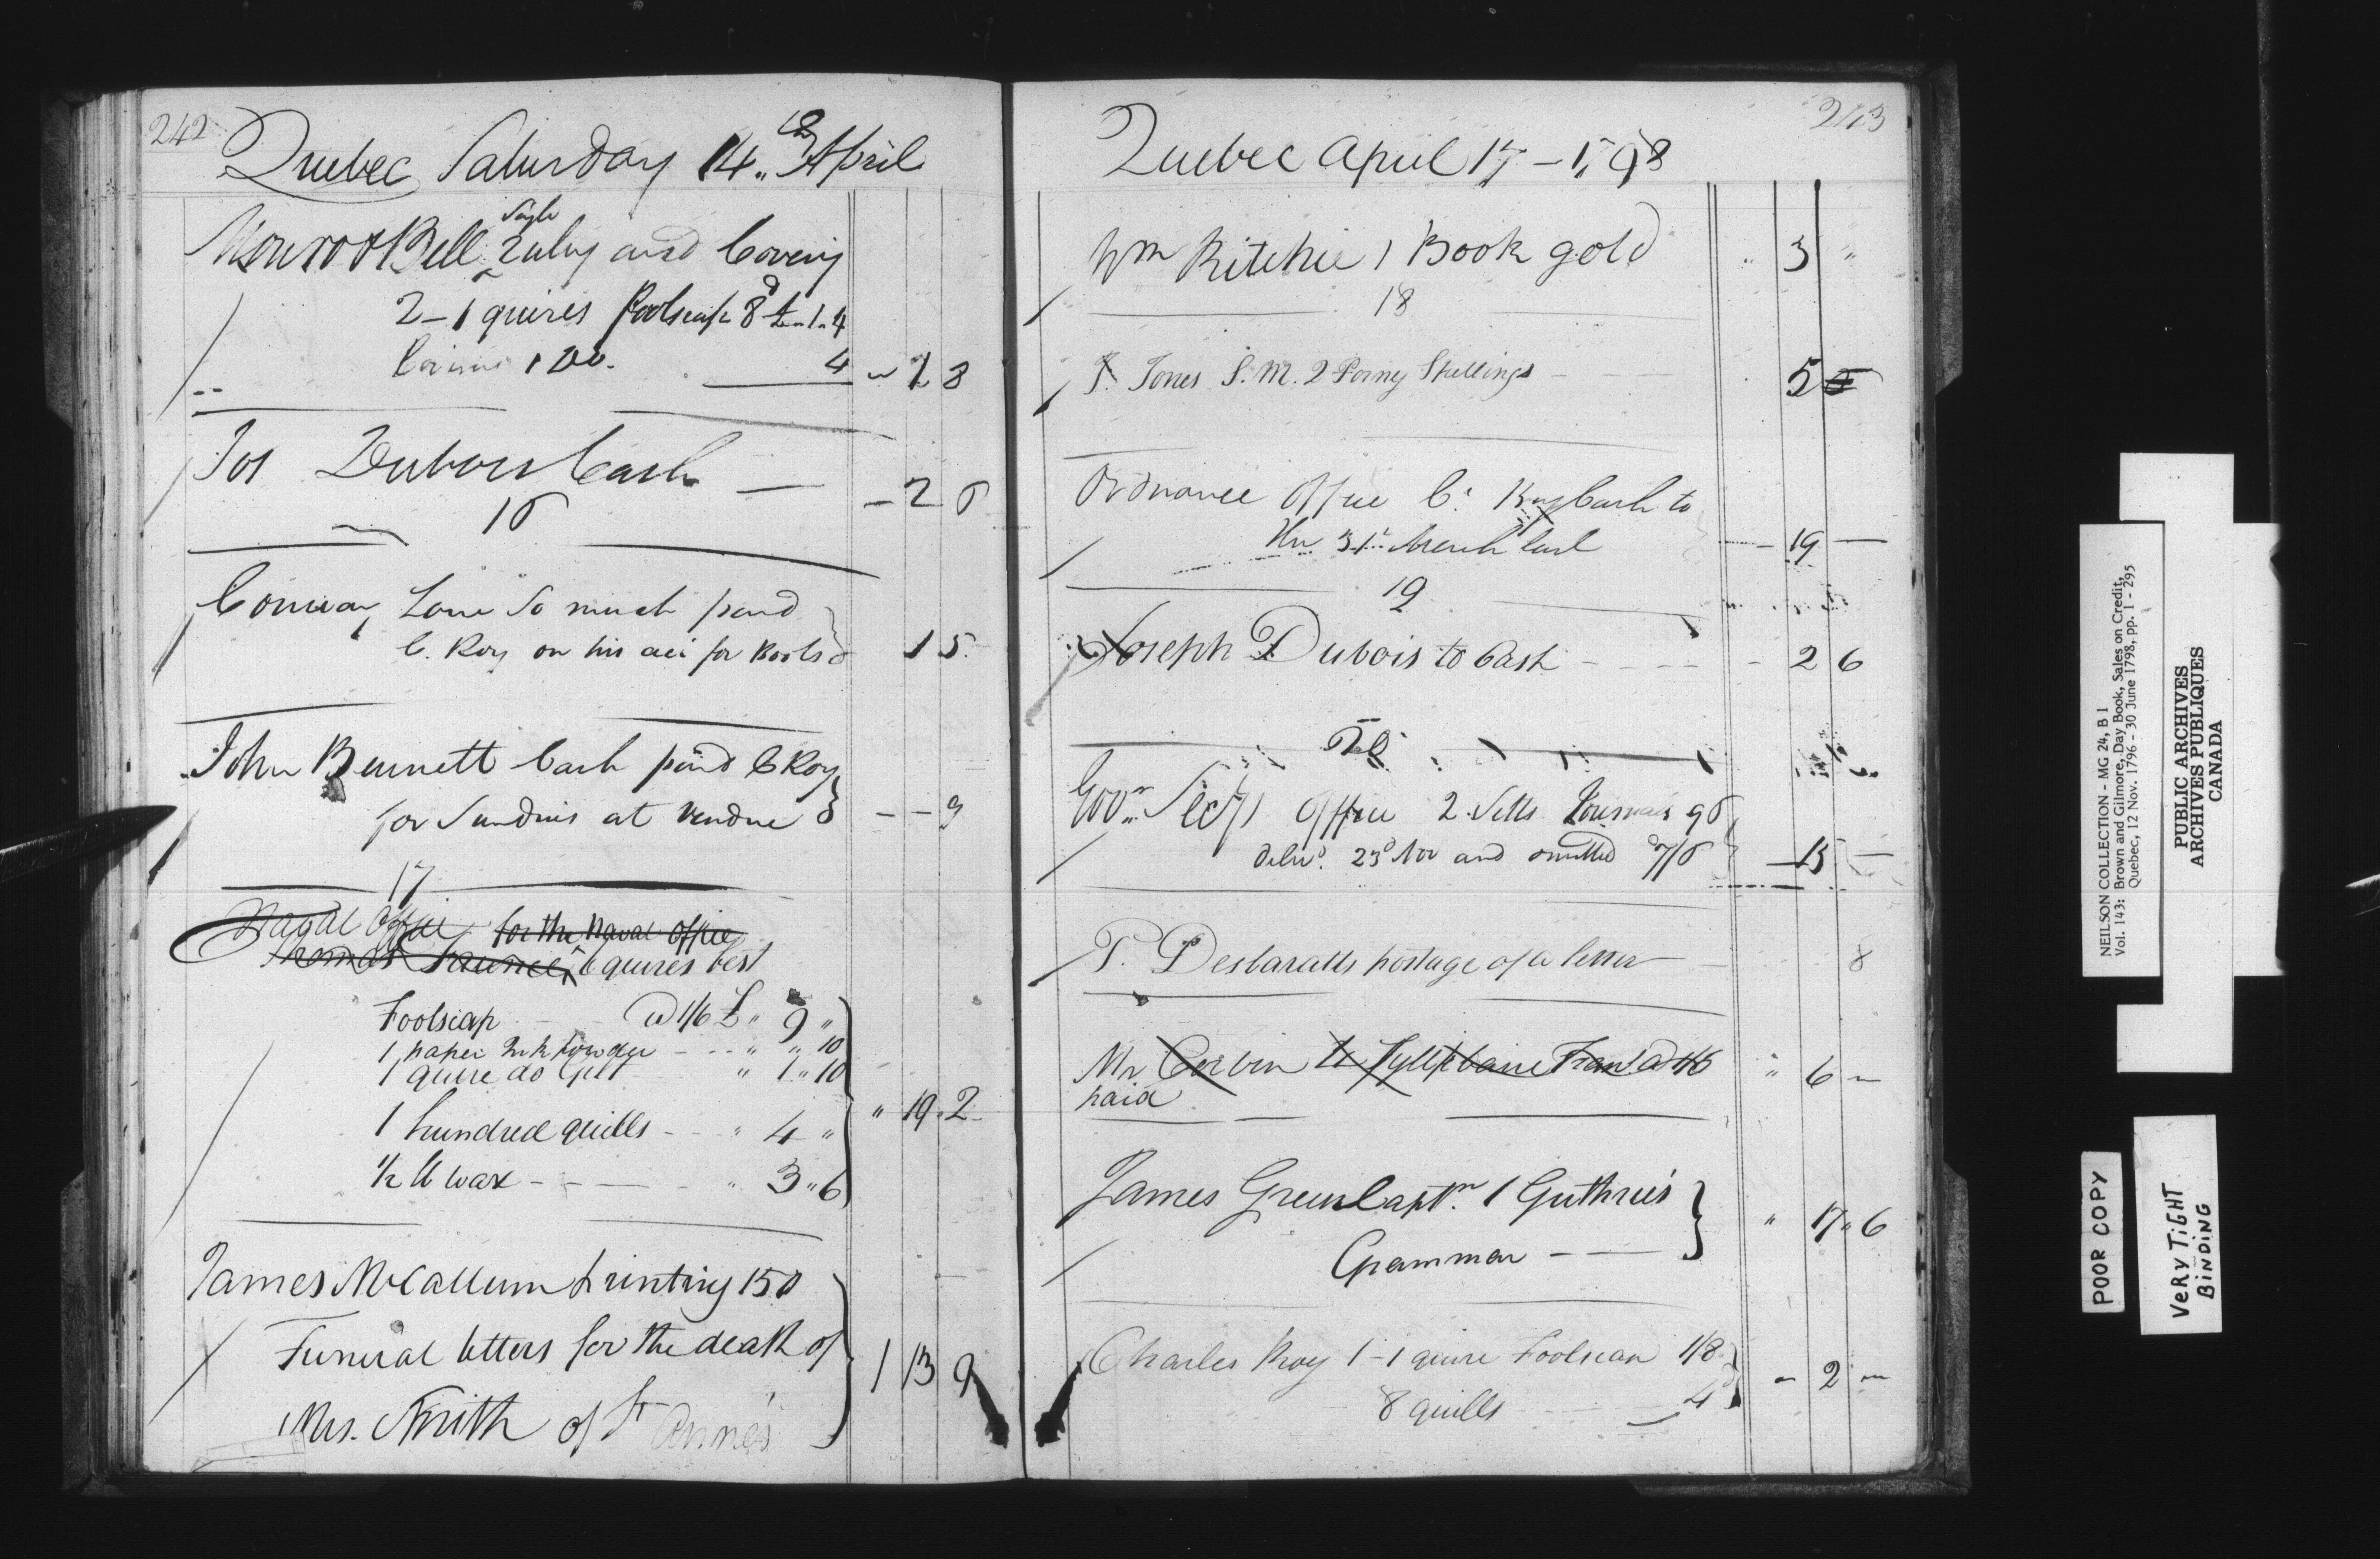 242
Quebec Saturday 14th April
Monro & Bell ruling and Covering
2 - 1 quires foolscap 8d £ " 1 " 4
1 Do. 4 " 1 8
Jos Dubois Cash — - 2 6
16
Conway Lane So much paid
C. Roy on his acct for Books 1 5
John Bennett Cash paid C Roy
for Sundries at Vendue - - 9
17
Naval Office for the Naval Office
Thomas 6 quires best
Foolscap @ 1/6 £ " 9 "
1 paper Ink Powder " " 10
1 quire do Gilt " 1 " 10
" 19 " 2
1 hundred quills " 4 "
½ lb wax " 3 " 6
James McCallum printing 150
Funeral letters for the death of
1 13 9
Mrs. Smith of St Anne's
243
Quebec April 17 - 1798
Wm Ritchie 1 Book gold " 3 "
18
J. Jones S. M. 2 Porny Spellings 5
Ordnance Office C. Roy Cash to
the 31st March last - 19 —
19
Joseph Dubois to Cash - 2 6
20
Govr Secy's Office 2 Setts Journals
delivd. 23d Nov and omitted 7/6 — 15 —
P. Desbaratts postage of a letter 8
Mr Corbin " 6 "
paid
James Green Captn. 1 Guthrie's
Grammar " 17 " 6
Charles Roy 1 - 1 quire Foolscap 1/8
8 quills 4 - 2 "
NEILSON COLLECTION - MG 24, B 1
Vol. 143: Brown and Gilmore, Day Book, Sales on Credit,
Quebec, 12 Nov. 1796 - 30 June 1798, pp. 1 - 295
PUBLIC ARCHIVES
ARCHIVES PUBLIQUES
CANADA
POOR COPY
VERY TIGHT
BINDING